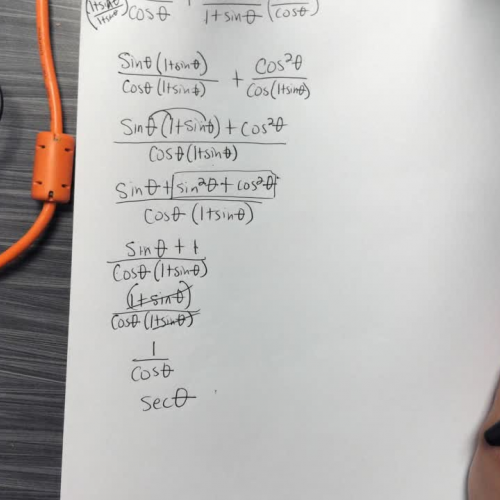 (1+sinθ / 1+sinθ) / cosθ + / 1+sinθ ( / cosθ)
sinθ(1+sinθ) / cosθ(1+sinθ) + cos²θ / cos(1+sinθ)
sinθ(1+sinθ) + cos²θ / cosθ(1+sinθ)
sinθ + sin²θ + cos²θ / cosθ(1+sinθ)
sinθ + 1 / cosθ(1+sinθ)
(1+sinθ) / cosθ(1+sinθ)
1 / cosθ
secθ